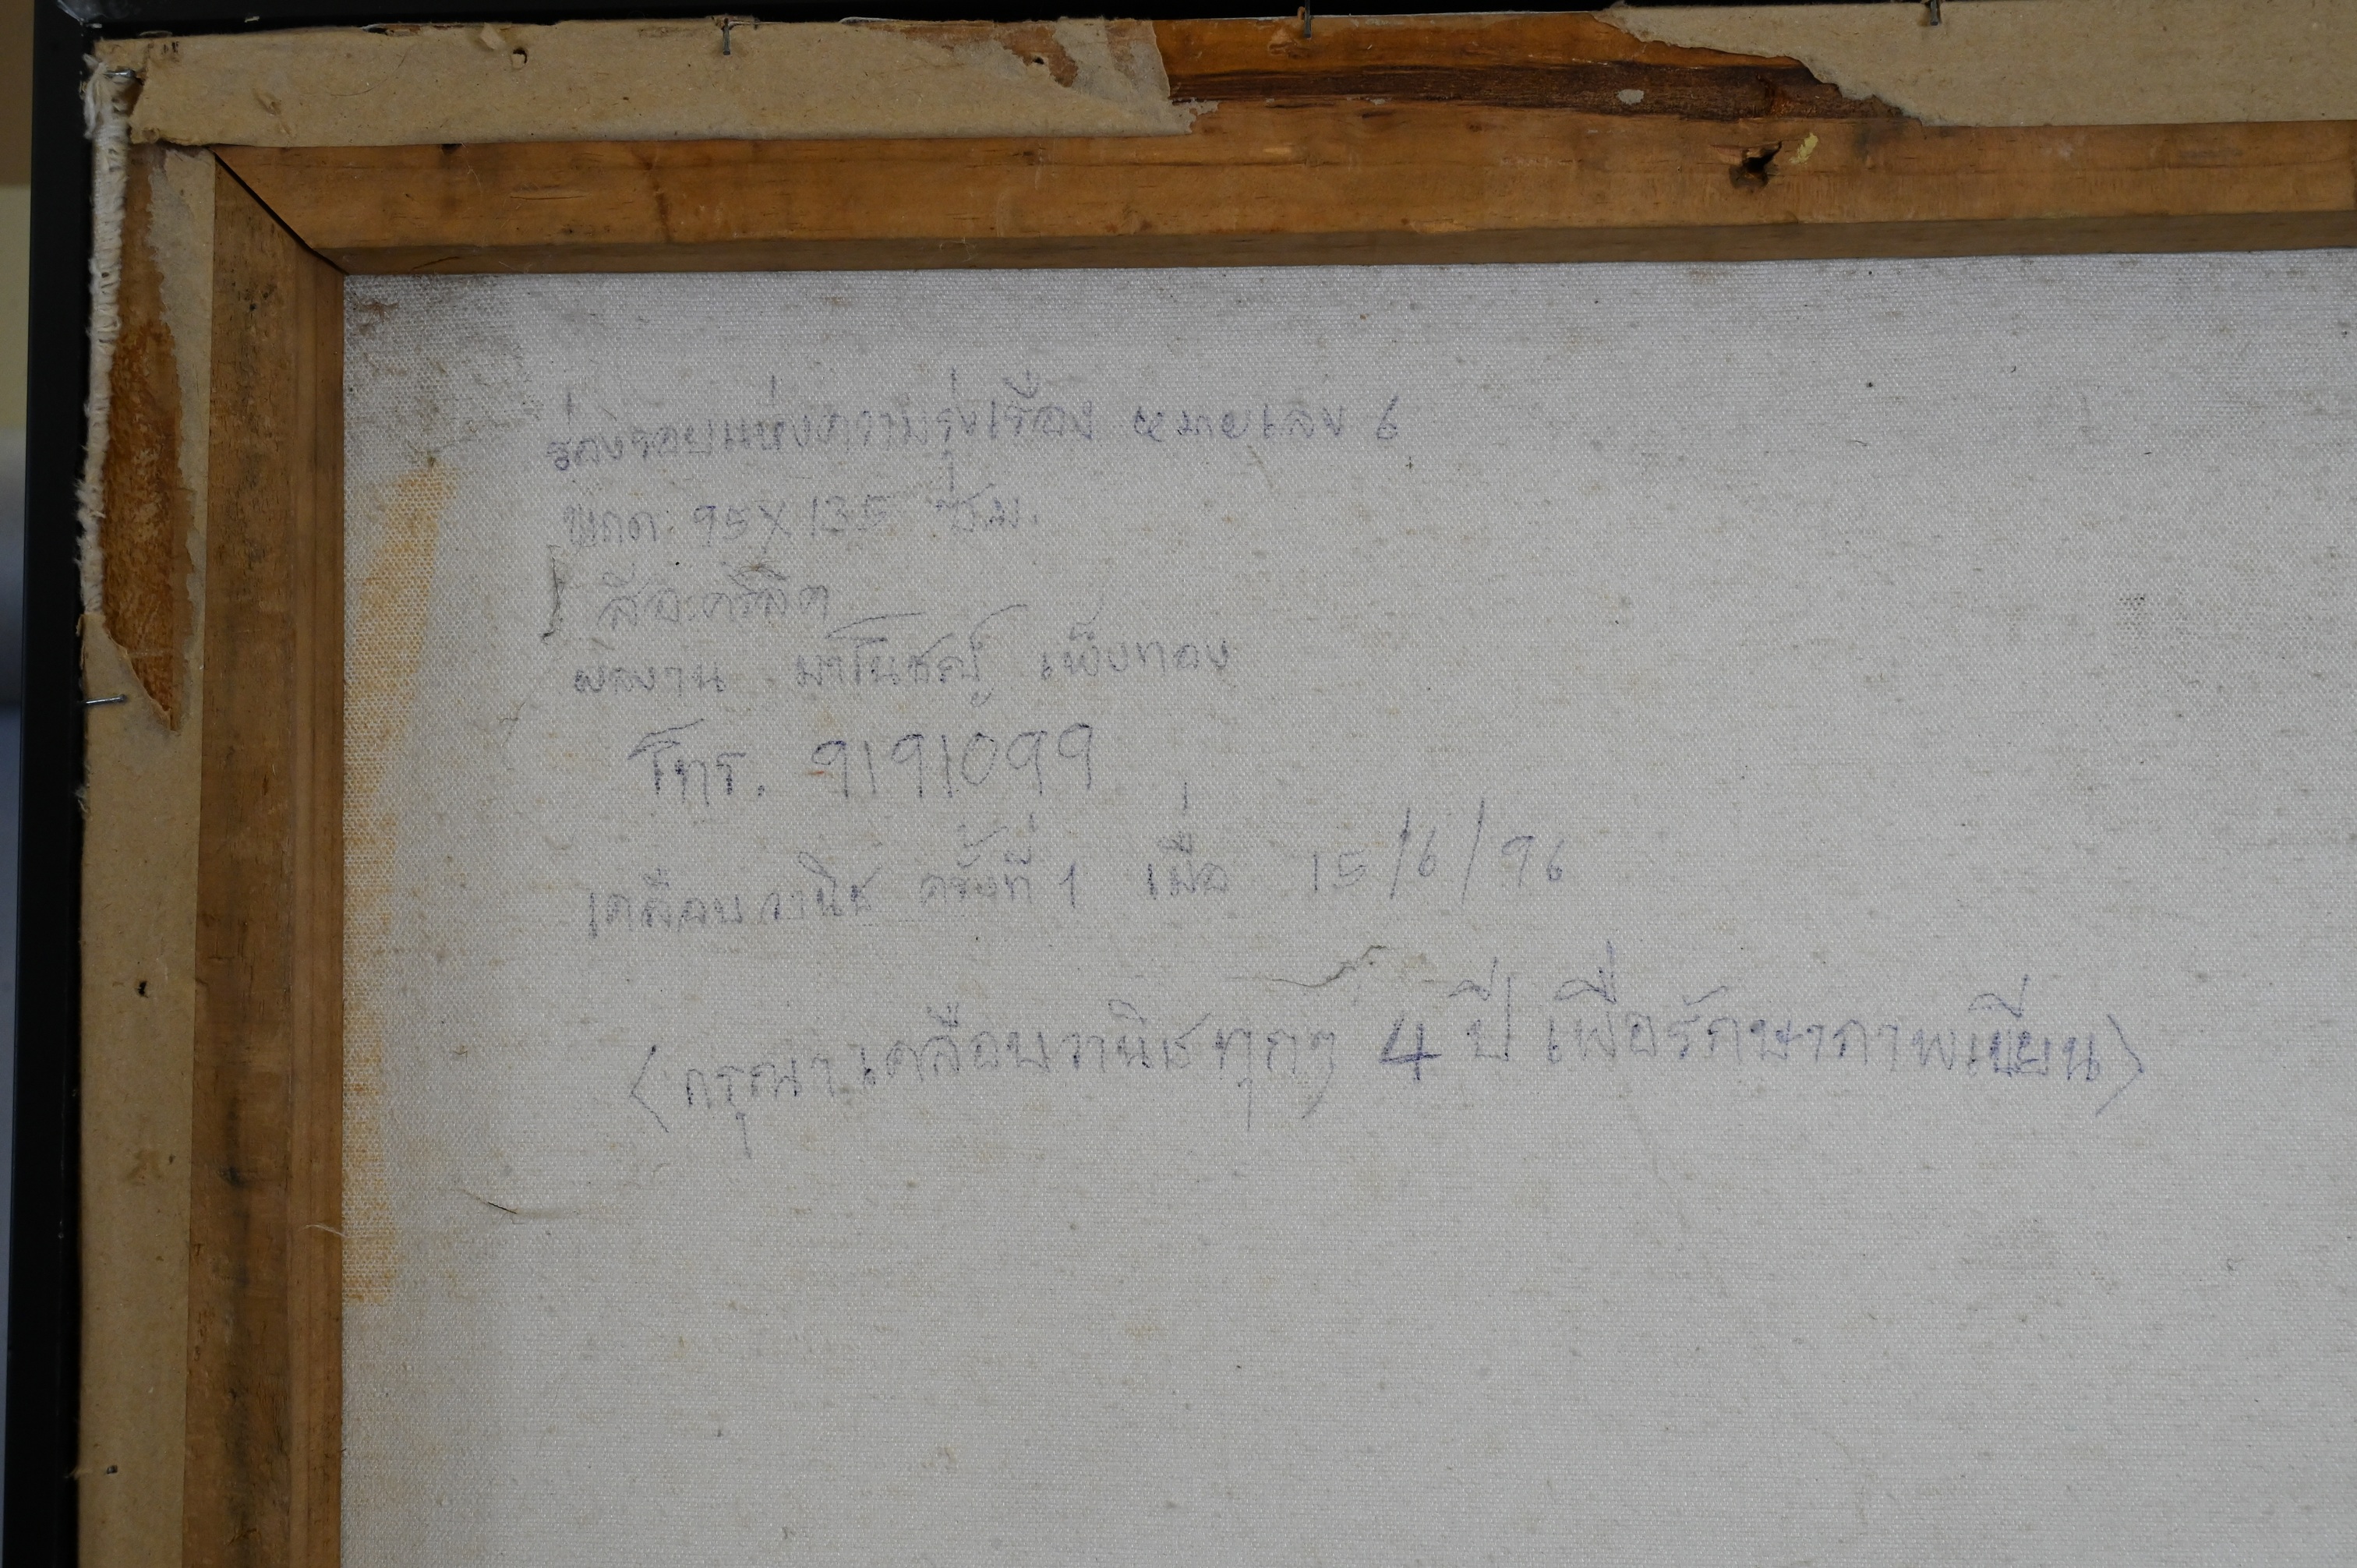 ร่องรอยแห่งความรุ่งเรือง หมายเลข 6
ขนาด: 95X135 ซ.ม.
สีอะคริลิค
ผลงาน มาโนชญ์ เพ็งทอง
โทร. 9191099
เคลือบวานิช ครั้งที่ 1 เมื่อ 15/6/96
<กรุณาเคลือบวานิชทุกๆ 4 ปี เพื่อรักษาภาพเขียน>